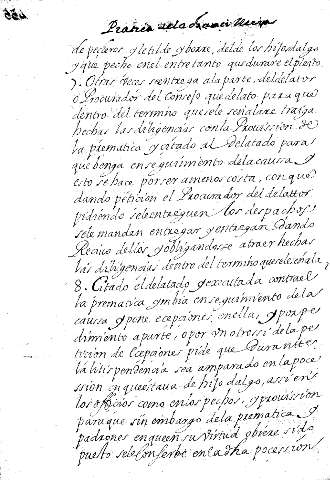 de pecheros y letilde y borre, del de los hijosdalgo
y que peche en el entretanto que durare el pleito
7. Otras veces se entrega a la parte, del delator
o Procurador del Consejo que delato para que
dentro del termino que se le señalare traiga
hechas las diligencias con la Provission de
la prematica y citado al delatado para
que benga en seguimiento de la causa. Y
esto se hace por ser a menos costa, con que
dando peticion el Procurador del delattor
pidiendo se le entreguen los despachos
se le mandan entregar y entregan Dando
Recivo dellos y obligandosse a traer hechas
las diligencias dentro del termino que se le señala
8. Citado el delatado y executada contra el
la prematica y imbia en seguimiento de la
caussa y pone ecepciones en ella, y por pe
dimiento a parte, o por un otressi de la pe
ticion de Ecepciones pide que Durante
la litispendencia sea amparado en la poce
ssion en que estava de hijodalgo, assi en
los officios como en los pechos, y provission
para que sin embargo de la prematica y
padrones en que en su virtud obiere sido
puesto se le conserbe en la dha pocession,